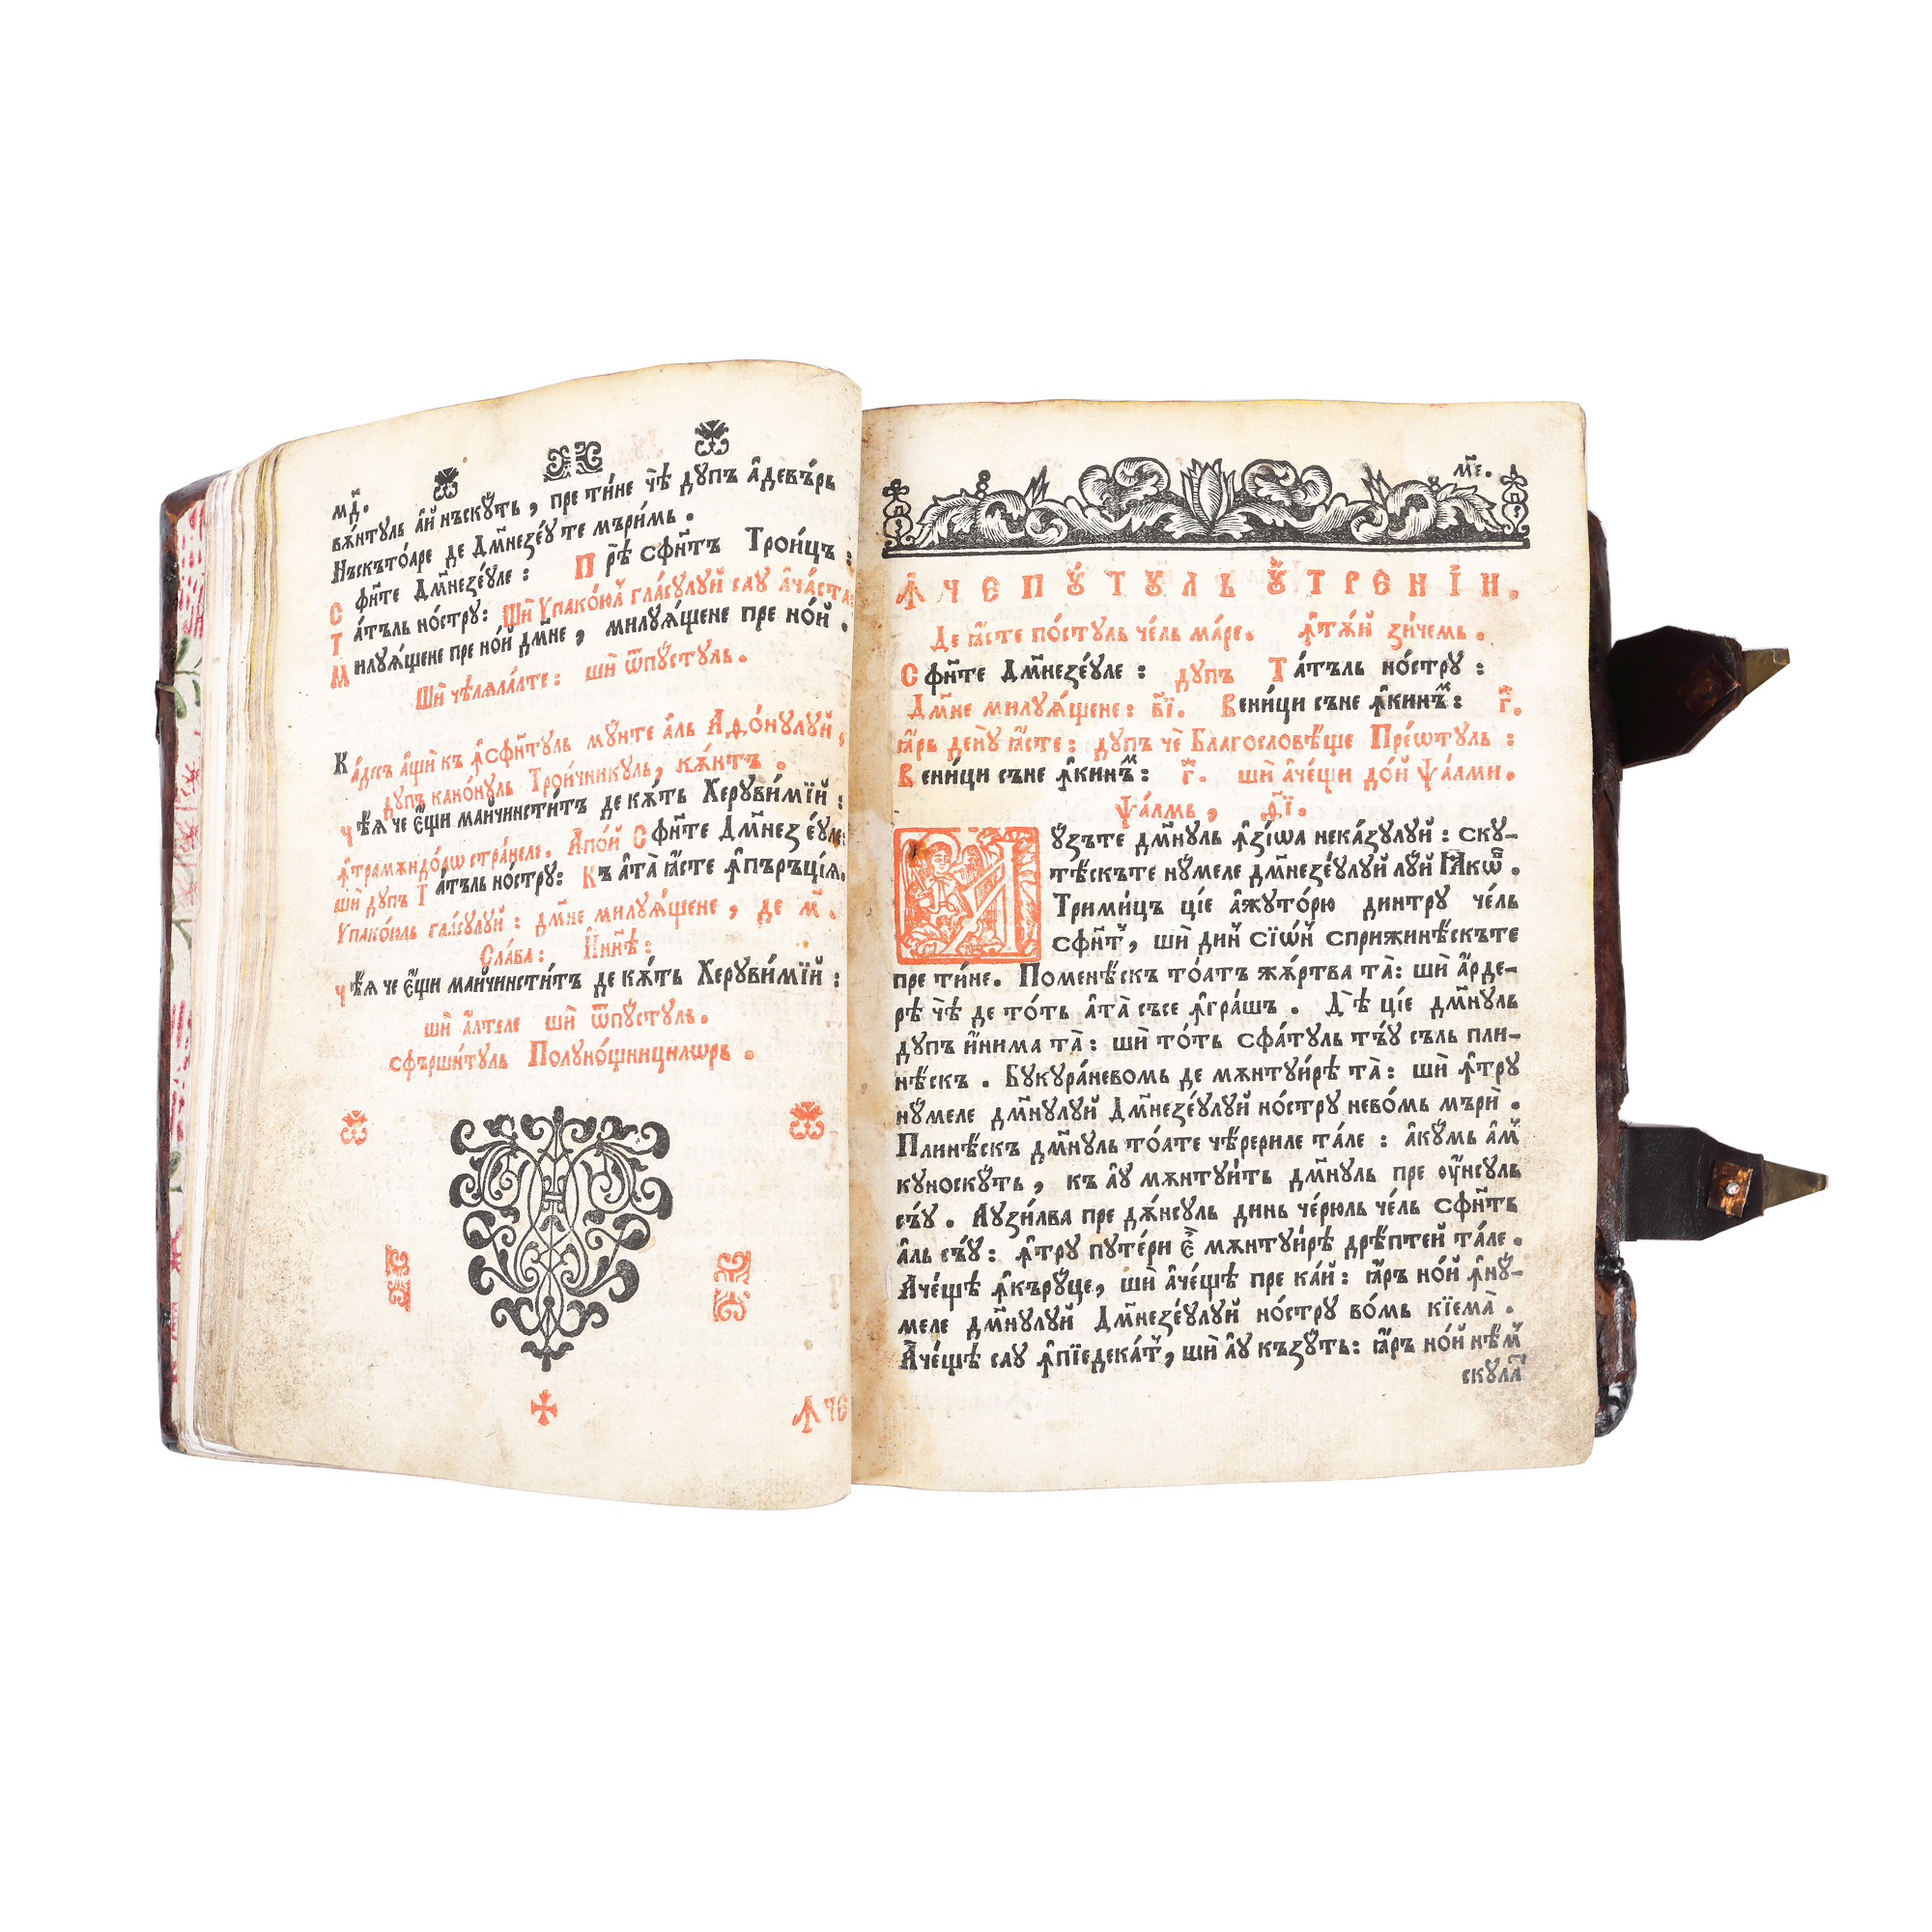 мд҃.
вѫ́нтуль а҆й нъскꙋ́ть , пре ти́не чѐ дупъ а҆девъ́рь
Нъскъто́аре де Дм҃незе́у те мъри́мь .
Сфи҃те Дм҃незе́уле : Прѣ̀ сфи҃тъ Трои́цъ :
Та́тъль но́стру: Шѝ Ѵпако́юл̾ гла́сулуй сау а҆ча́ста:
Милуѧ́щене пре но́й дм҃не , милуѧ́щене пре но́й .
Шѝ чѣлѧла́лте : шѝ ѿпустуль .
Ка́десъ а҆щѝ къ ꙟ҆сфи҃туль мꙋ́нте а҆ль Адо́нулуй ,
дупъ кано́нуль Трои́чникуль, кѫ́нтъ .
Чѣѧ че є҆щи май чинсти́тъ де кѫ́ть Херуви́мїй :
ꙟ҆трамѫндо́аѡ стра́неле . Апо́й Сфи҃те Дм҃незе́уле:
шѝ дупъ Та́тъль но́стру: Къ а҆та̀ ꙗ҆сте ꙟ҆пъръці́ѧ.
Ѵпако́юль гла́сулуй : дм҃не милуѧ́щене , де м҃ .
Сла́ва : И҆ни҃ѣ :
Чѣѧ че є҆щи май чинсти́тъ де кѫ́ть Херуви́мїй :
шѝ а҆лтеле шѝ ѿпустуль .
сфършитуль Полуно́щницилѡрь .
Ꙟче
м҃е.
ꙞЧЕПꙊТУЛЬ ОУ҆ТРЕНІЙ.
Де ꙗ҆сте по́стуль че́ль ма́ре. ꙟ҆тѫ́й зи́чемь .
Сфи҃те Дм҃незе́уле : дупъ Та́тъль но́стру :
Дм҃не милуѧ́щене : в҃і. Вени́ци съне ꙟ҆кинъ̾м : г҃.
ꙗ҆рь де ну ꙗ҆сте : дупъ чѐ Благословѣ́ще Пре́ѡтуль :
Вени́ци съне ꙟ҆кинъ̾м : г҃. шѝ а҆че́щи до́й Ѱа́лми.
Ѱа́лмь , д҃і.
Аꙋзъте дм҃нуль ꙟ҆зі́ѡа неказулуй : ску-
тѣскъте нꙋмеле дм҃незе́улуй лꙋй Іакѡ̾в .
Трими́цъ ці́е а҆жуто́рю динтру че́ль
сфи҃т̾, шѝ дин̾ Сїѡ́н̾ сприжинѣ́скъте
пре ти́не. Поменѣ́скъ то́атъ жѫ́ртва та̀: шѝ а҆рде-
рѣ чѐ де то́ть а҆та̀ съсе ꙟ҆гра́шъ . Дѣ̀ ці́е дм҃нуль
дупъ и҆нима та̀ : шѝ то́ть сфа́туль тъ́у съль пли-
нѣ́скъ . Букура́невомь де мѫнтуи́рѣ та̀: шѝ ꙟ҆тру
нꙋмеле дм҃нулуй Дм҃незе́улуй но́стру нево́мь мърѝ .
Плинѣ́скъ дм҃нуль то́ате че́рериле та́ле : а҆кꙋмь а҆м̾
куноскꙋть , къ а҆у мѫнтуи́ть дм҃нуль пре оу҆нсуль
съ́у . Аузилва пре дѫ́нсуль динь че́рюль че́ль сфи҃ть
а҆ль съ́у : ꙟ҆тру путе́ри є҆ мѫнтуи́рѣ дрѣ́птей та́ле .
Аче́щѣ ꙟ҆къру́це, шѝ а҆че́щѣ пре ка́й : ꙗ҆ръ но́й ꙟ҆нꙋ-
меле дм҃нулуй Дм҃незе́улуй но́стру во́мь кїема̀ .
Аче́щѣ сау ꙟ҆пїедека́т̾, шѝ а҆у къзꙋть : ꙗ҆ръ но́й нѣм̾
скула̾т